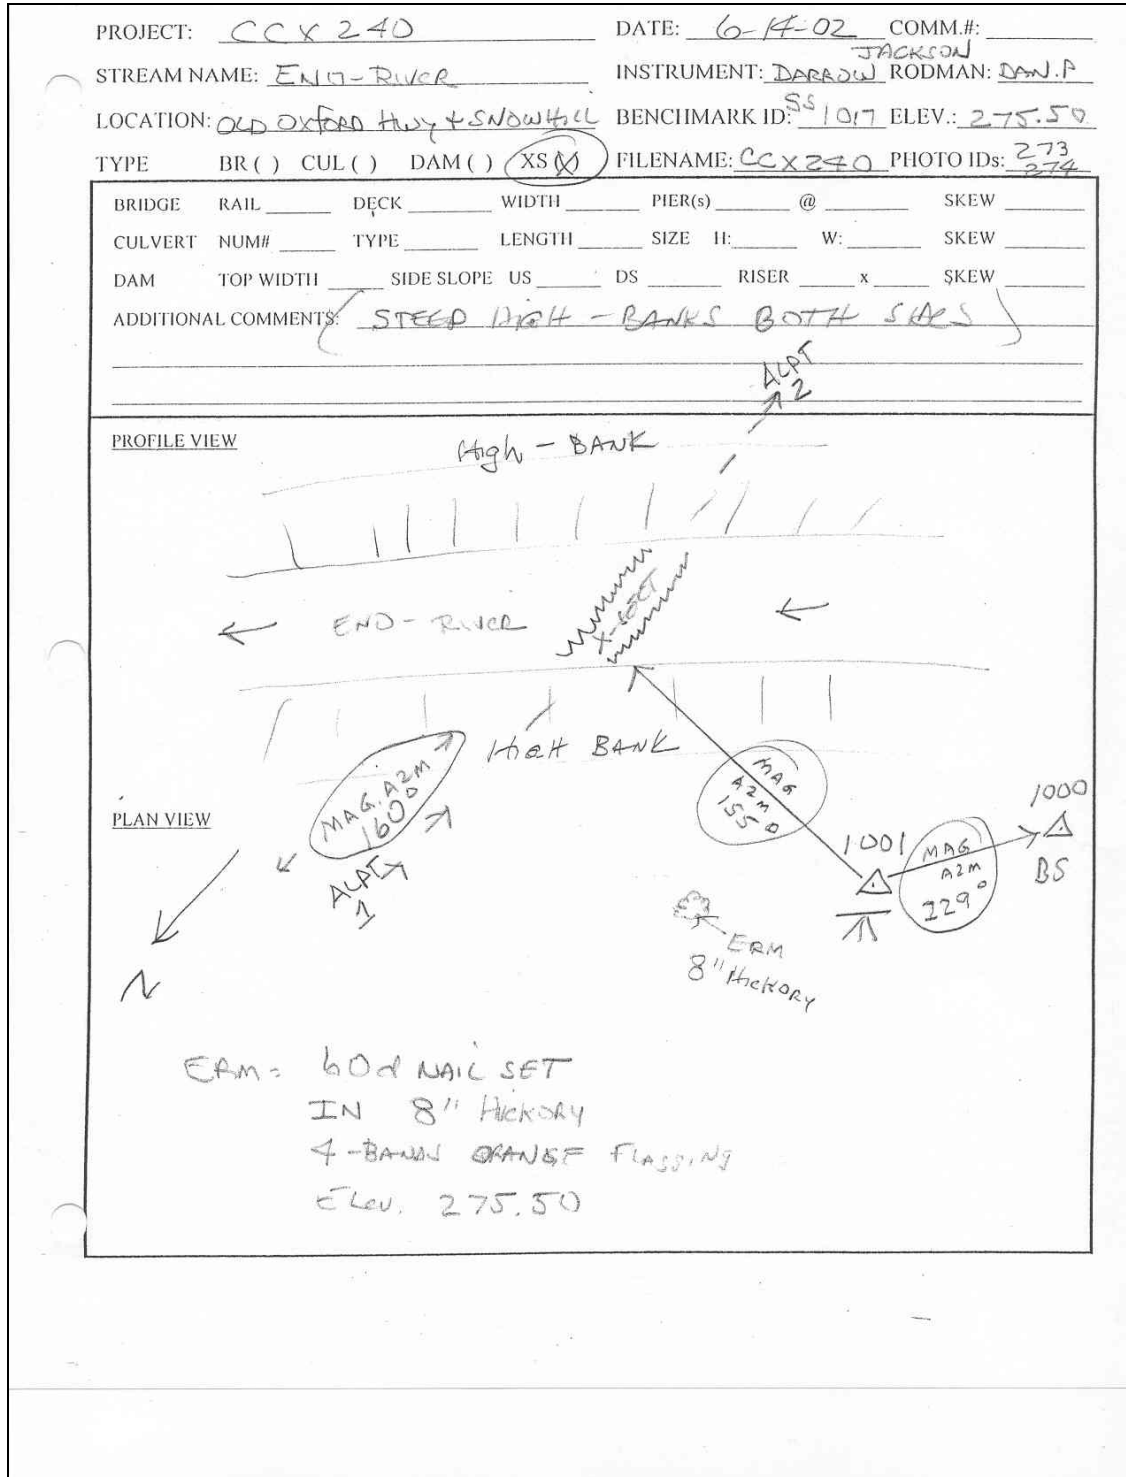 PROJECT: CCX 240 DATE: 6-14-02 COMM.#:
JACKSON
STREAM NAME: ENO-RIVER INSTRUMENT: DARROW RODMAN: DAN.P
LOCATION: OLD OXFORD Hwy + SNOWHILL BENCHMARK ID: SS 1017 ELEV.: 275.50
TYPE BR ( ) CUL ( ) DAM ( ) XS (X) FILENAME: CCX240 PHOTO IDs: 273
274
BRIDGE RAIL DECK WIDTH PIER(s) @ SKEW
CULVERT NUM# TYPE LENGTH SIZE H: W: SKEW
DAM TOP WIDTH SIDE SLOPE US DS RISER x SKEW
ADDITIONAL COMMENTS: STEEP HIGH - BANKS BOTH SIDES
ALPT
2
PROFILE VIEW
High - BANK
X-SECT
ENO - RIVER
HIGH BANK
MAG. AZM
160°
ALPT
1
MAG
AZM
155°
PLAN VIEW
1000
BS
1001
MAG
AZM
229°
ERM
8" HICKORY
N
ERM = 60d NAIL SET
IN 8" HICKORY
4 - BANDS ORANGE FLAGGING
ELEV. 275.50